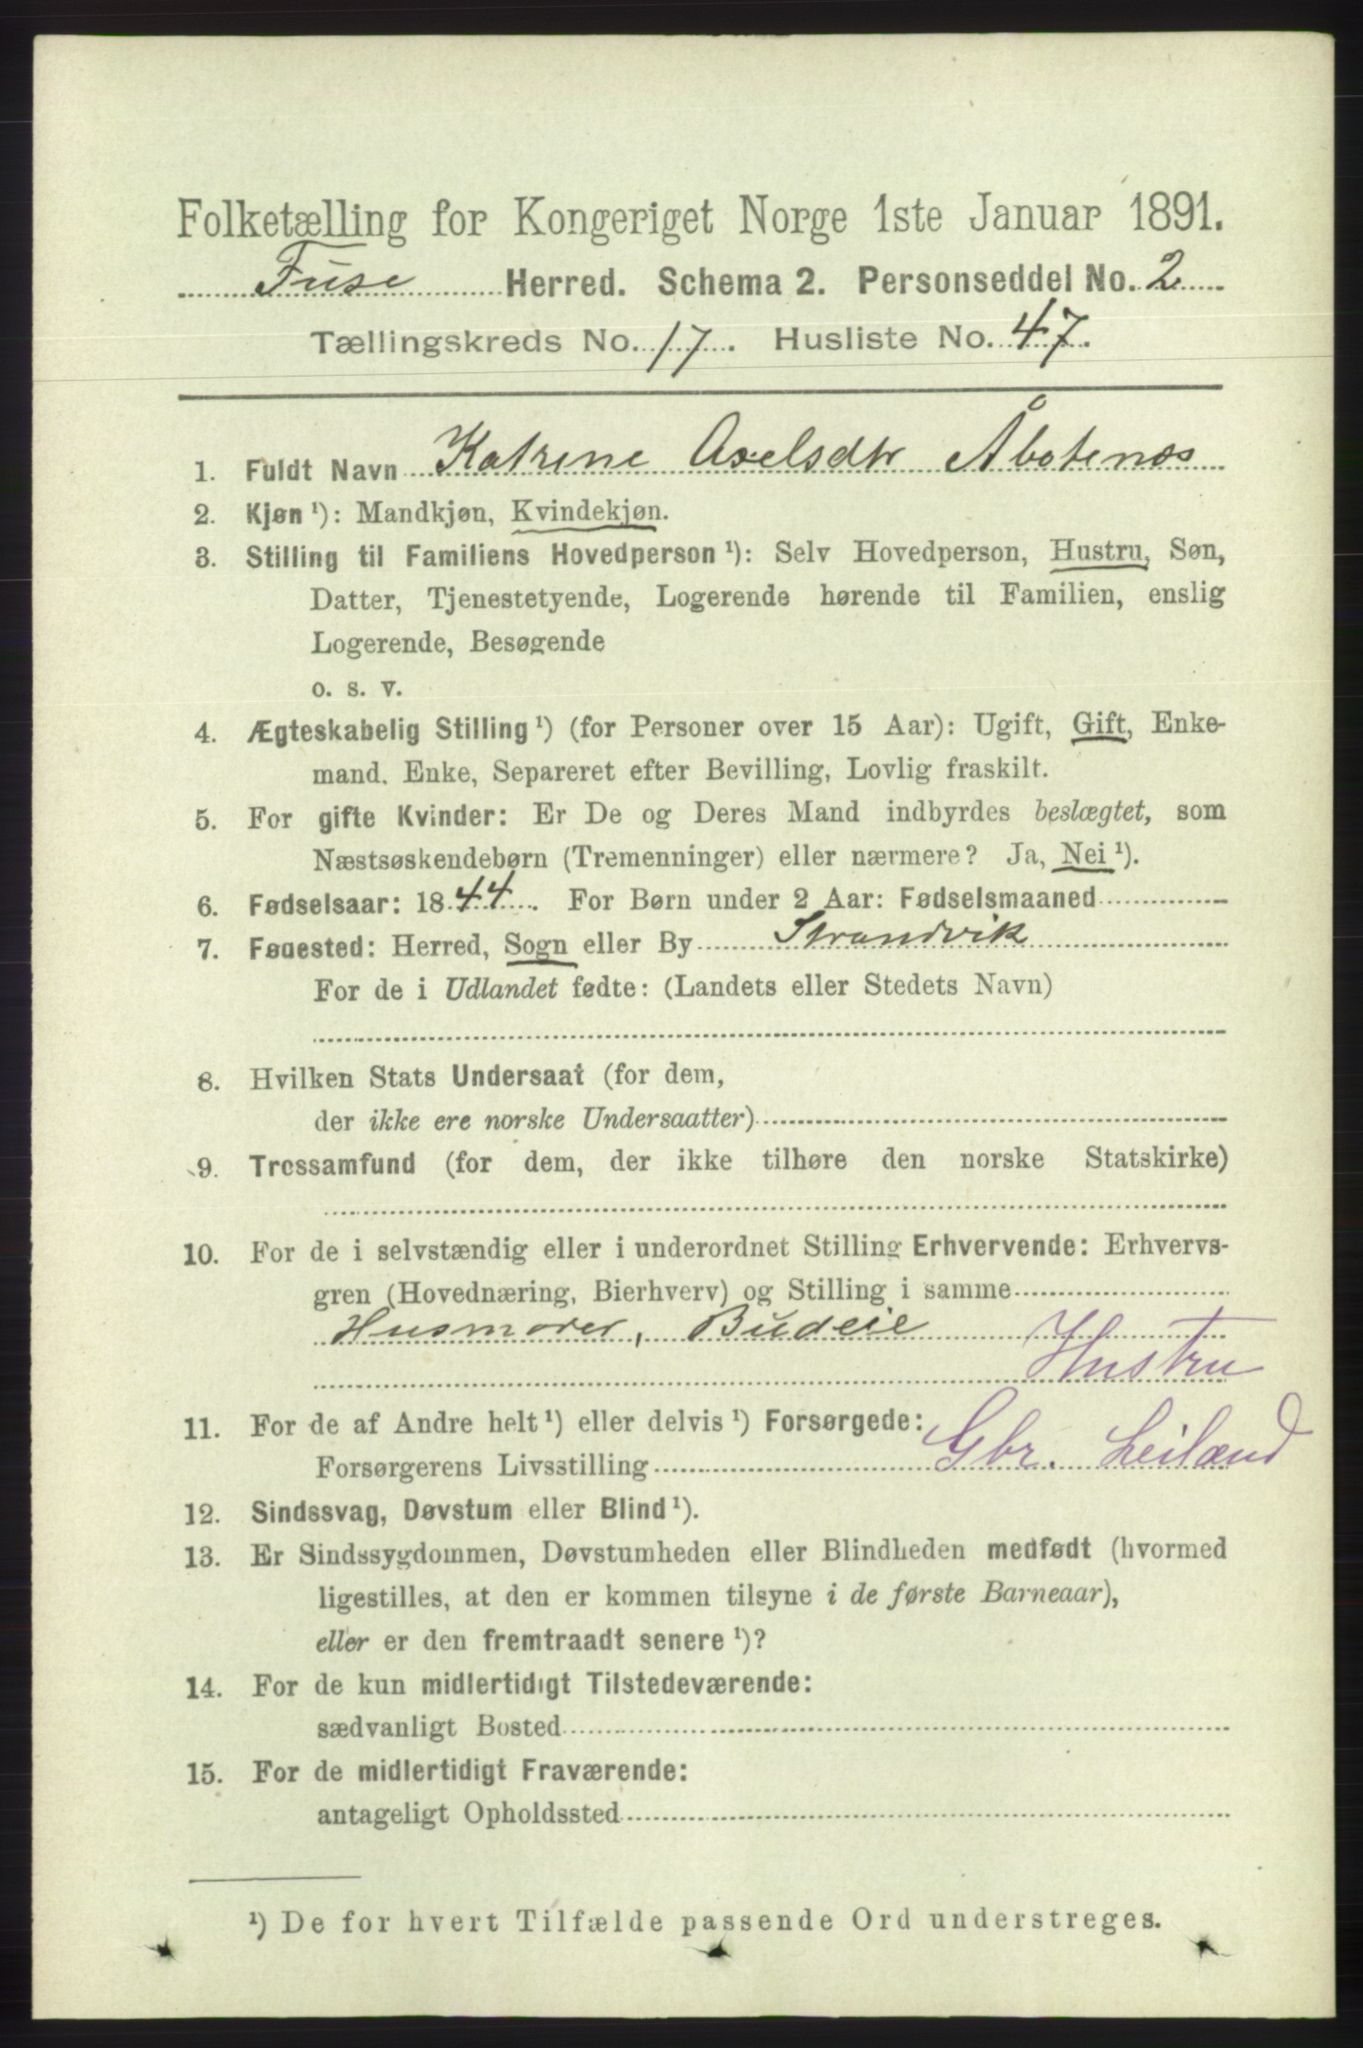 Folketælling for Kongeriget Norge 1ste Januar 1891.
Fuse Herred. Schema 2. Personseddel No. 2
Tællingskreds No. 17. Husliste No. 47.
1. Fuldt Navn Katrine Axelsdtr Åbotenæs
2. Kjøn ¹): Mandkjøn, Kvindekjøn.
3. Stilling til Familiens Hovedperson ¹): Selv Hovedperson, Hustru, Søn,
Datter, Tjenestetyende, Logerende hørende til Familien, enslig
Logerende, Besøgende
o. s. v.
4. Ægteskabelig Stilling ¹) (for Personer over 15 Aar): Ugift, Gift, Enke-
mand, Enke, Separeret efter Bevilling, Lovlig fraskilt.
5. For gifte Kvinder: Er De og Deres Mand indbyrdes beslægtet, som
Næstsøskendebørn (Tremenninger) eller nærmere? Ja, Nei ¹).
6. Fødselsaar: 1844. For Børn under 2 Aar: Fødselsmaaned
7. Føuested: Herred, Sogn eller By Strandvik
For de i Udlandet fødte: (Landets eller Stedets Navn)
8. Hvilken Stats Undersaat (for dem,
der ikke ere norske Undersaatter)
9. Trossamfund (for dem, der ikke tilhøre den norske Statskirke)
10. For de i selvstændig eller i underordnet Stilling Erhvervende: Erhvervs-
gren (Hovednæring, Bierhverv) og Stilling i samme
Husmoder, Budeie
Hustru
11. For de af Andre helt ¹) eller delvis ¹) Forsørgede:
Forsørgerens Livsstilling Gbr. Leilænd
12. Sindssvag, Døvstum eller Blind ¹).
13. Er Sindssygdommen, Døvstumheden eller Blindheden medfødt (hvormed
ligestilles, at den er kommen tilsyne i de første Barneaar),
eller er den fremtraadt senere ¹)?
14. For de kun midlertidigt Tilstedeværende:
sædvanligt Bosted
15. For de midlertidigt Fraværende:
antageligt Opholdssted
¹) De for hvert Tilfælde passende Ord understreges.